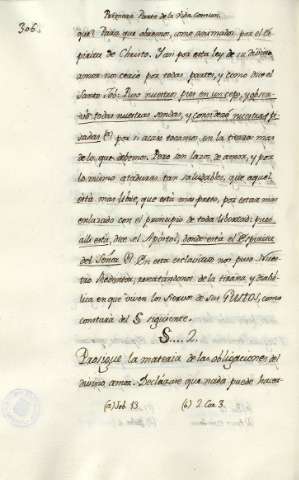 306.
Primera Parte de la Vida Comun.
que? para que obremos, como animados por el Es-
piritu de Christo. Y aun por esta ley de su divino
amor nos cercò por todas partes, y como dice el
Santo Job: Puso nuestros pies en un cepo, y obser-
vò todas nuestras sendas, y consideró nuestras pi-
sadas (a) por si acaso tocamos en la tierra mas
de lo que debemos. Pero son lazos de amor, y por
lo mismo ataduras tan saludables, que aquel
està mas libre, que està mas preso, por estar mas
enlazado con el principio de toda libertad: pues
alli està, dice el Apostol, donde està el Espiritu
del Señor (b). En esta esclavitud nos puso Nues-
tro Redentor, rescatandonos de la tirana, y diabò-
lica en que viven los siervos de sus Gustos, como
constarà del § siguiente.
§.... 2.
Prosigue la materia de las obligaciones del
divino amor. Declárase que nada puede hacer-
(a) Job. 13. (b) 2. Cor. 3.